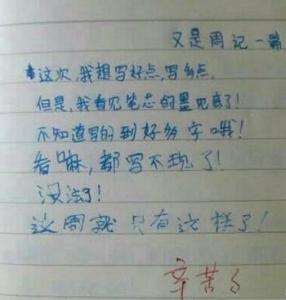 又是周记一篇
这次,我想写好点,写多点,
但是,我看见笔芯的墨见底了!
不知道写的到好多字哦!
看嘛,都写不现了!
没法了!
这周就只有这样了!
辛苦了